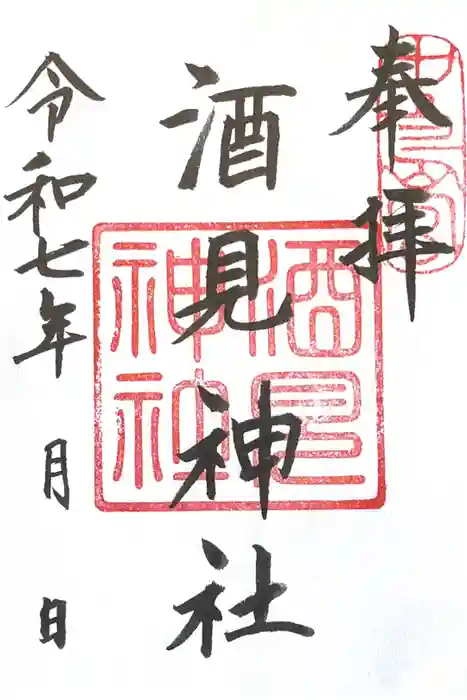 奉拝
酒見神社
令和七年 月 日
酒見神社